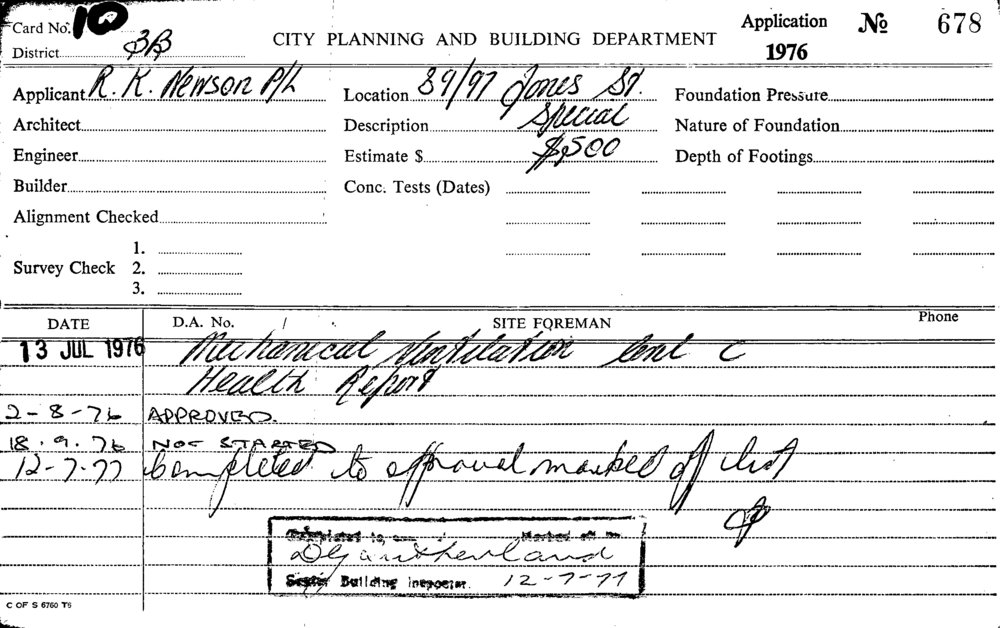 Card No. 10
District 3B
CITY PLANNING AND BUILDING DEPARTMENT
Application No 678
1976
Applicant R. K. Newson P/L
Location 89/97 Jones St.
Foundation Pressure
Architect
Description Special
Nature of Foundation
Engineer
Estimate $ $500
Depth of Footings
Builder
Conc. Tests (Dates)
Alignment Checked
1.
Survey Check 2.
3.
DATE D.A. No. SITE FOREMAN Phone
13 JUL 1976 Mechanical Ventilation C
Health Report
2-8-76 APPROVED.
18.9.76 NOT STARTED
12-7-77 Completed to approval marked off list
Completed to Marked off
Building Inspector. 12-7-77
C OF S 6760 T6